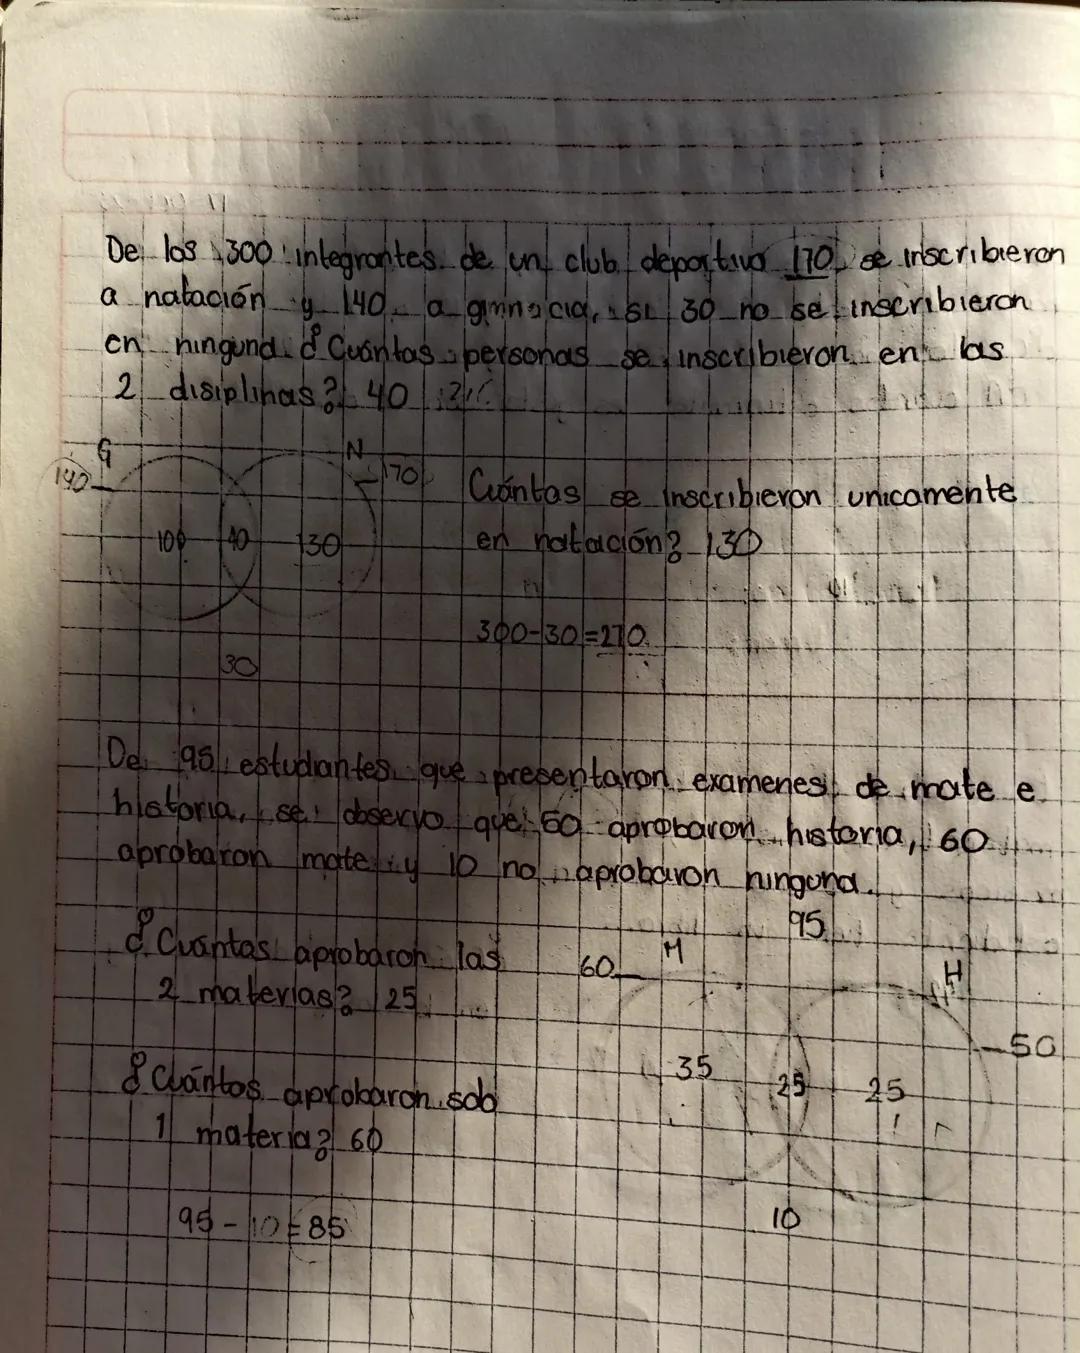 De los 300 integrantes de un club deportivo 170 se inscribieron
a natación y 140 a gimnacia, si 30 no se inscribieron
en ninguna. ¿Cuántas personas se inscribieron en las
2 disiplinas? 40
G
N
140
170
100 40 130
30
Cuántas se inscribieron unicamente
en natación? 130
300-30=270
De 95 estudiantes que presentaron examenes de mate e
historia, se observo que 50 aprobaron historia, 60
aprobaron mate y 10 no aprobaron ninguna.
95
¿Cuántas aprobaron las
2 materias? 25
60
M
H
50
35 25 25
10
¿Cuántos aprobaron solo
1 materia? 60
95-10=85